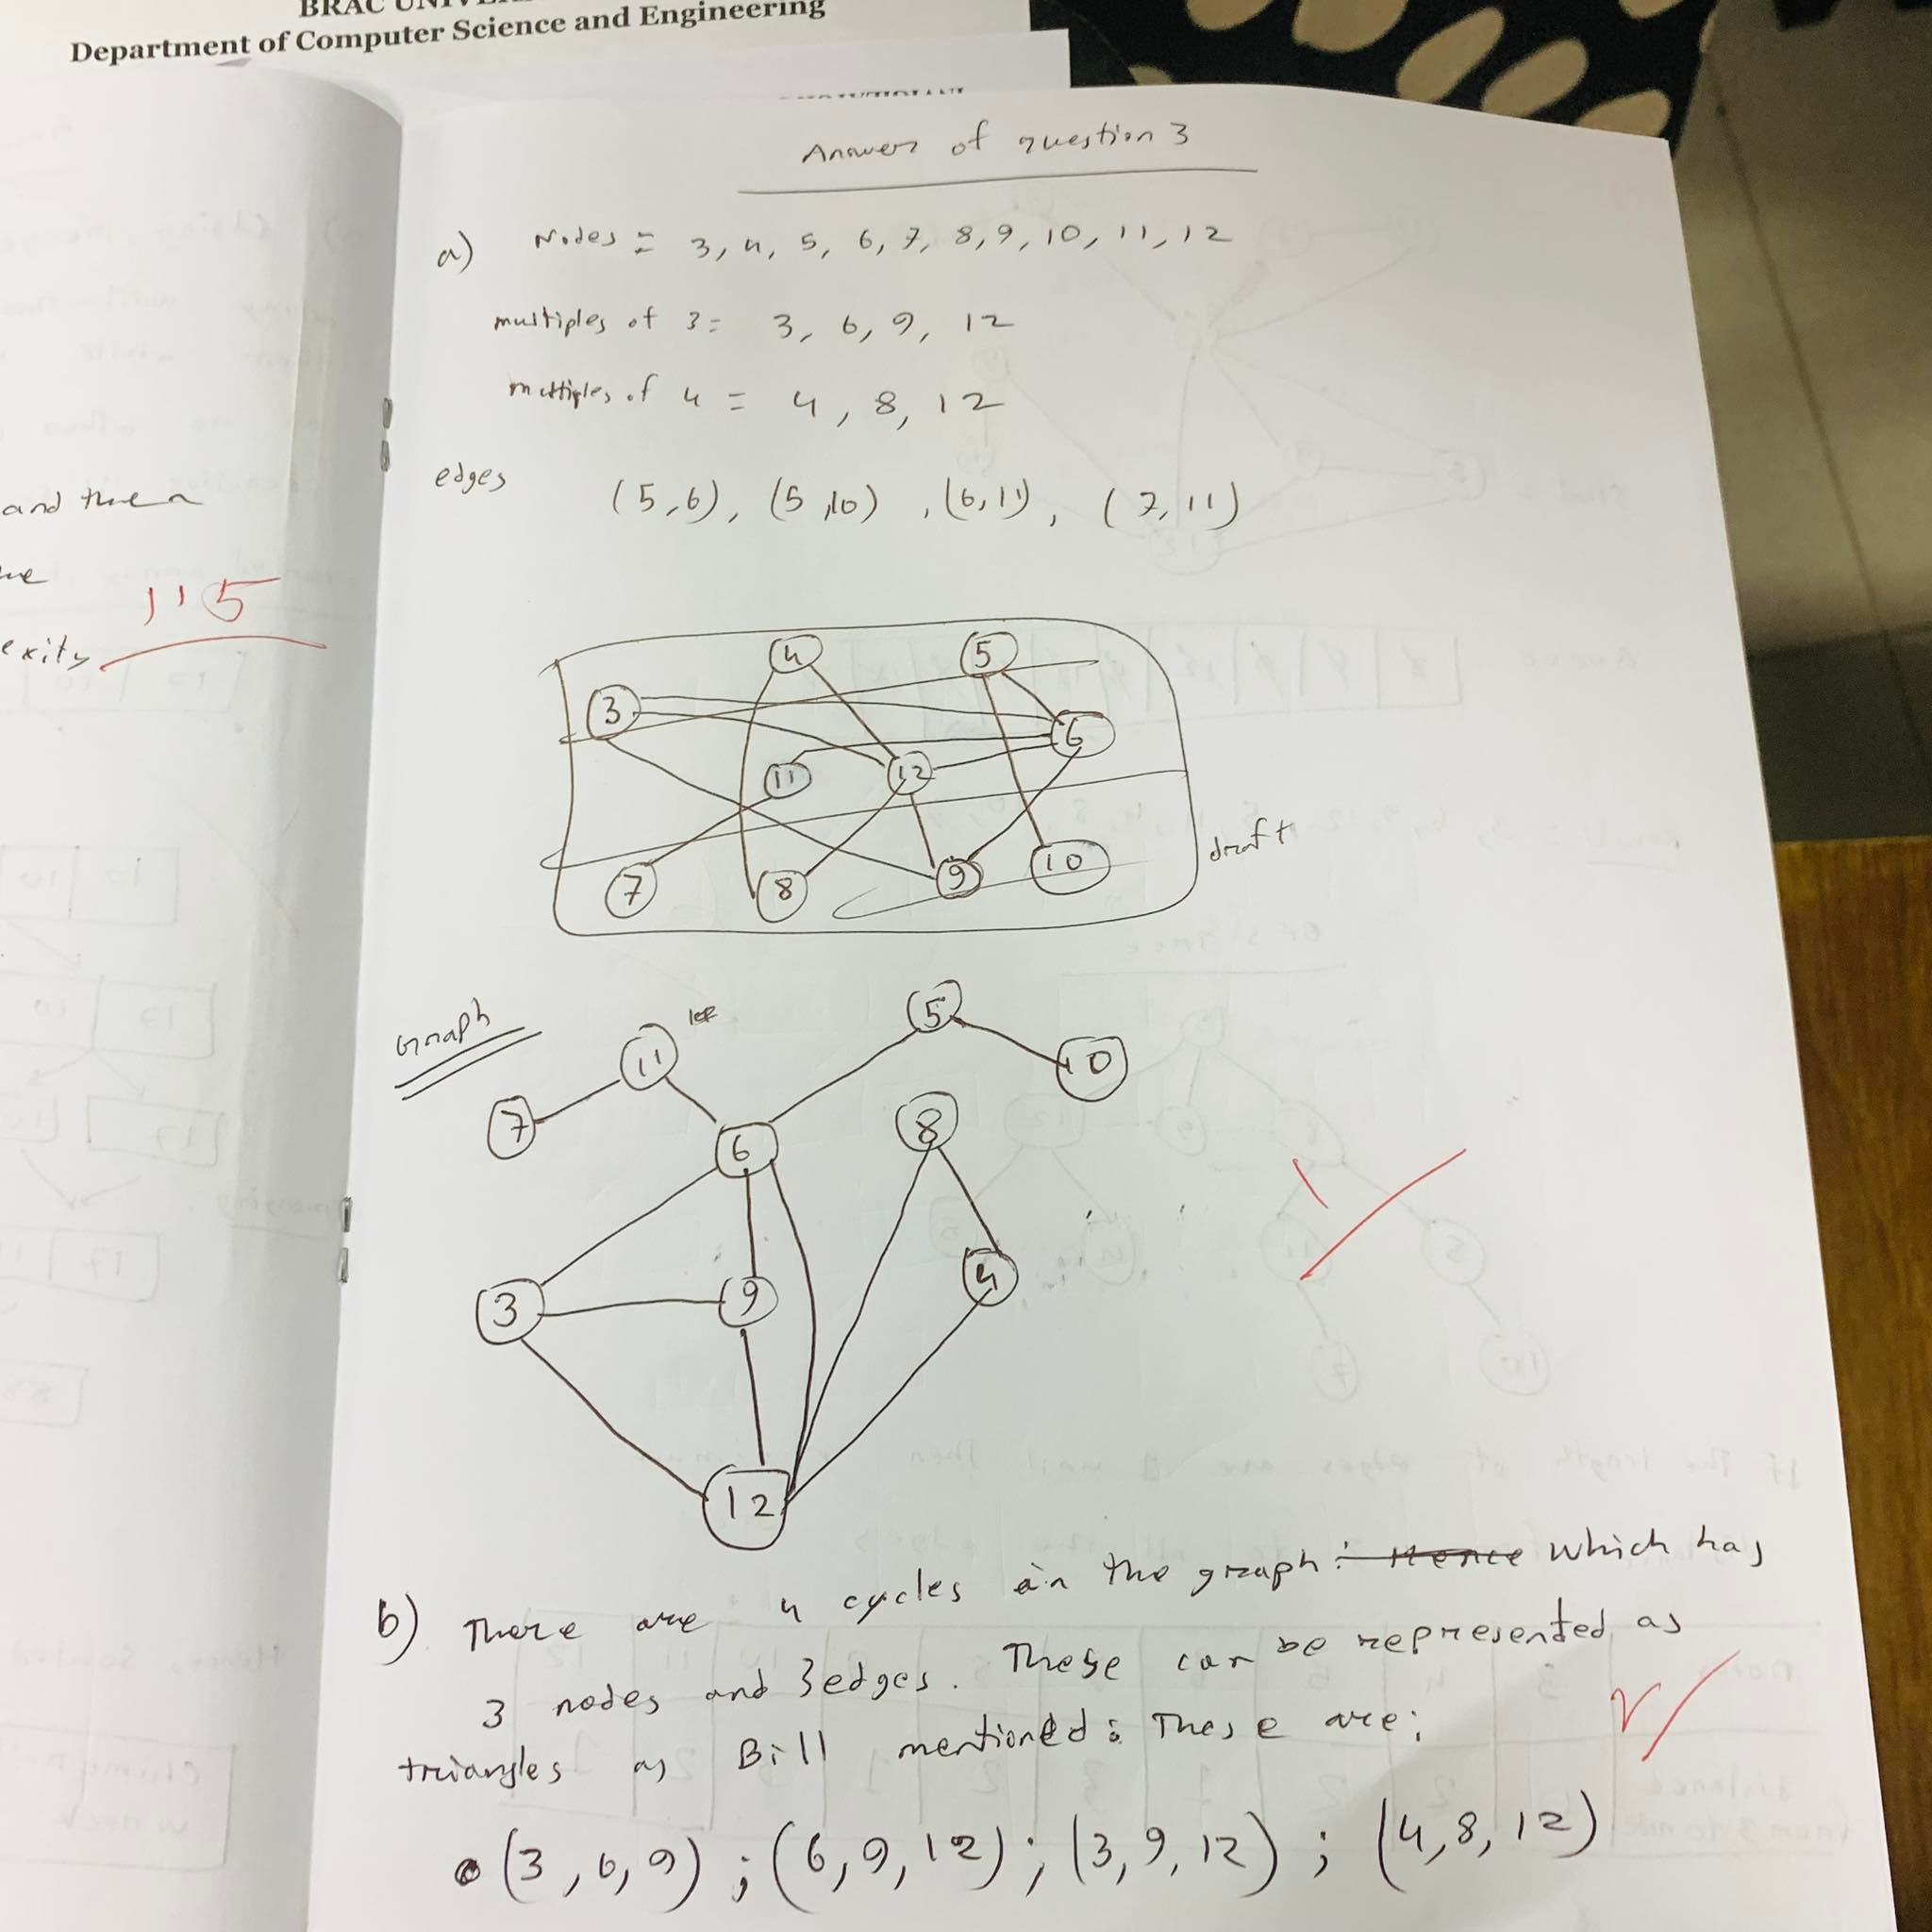 Department of Computer Science and Engineering
Answer of question 3
a) Nodes = 3, 4, 5, 6, 7, 8, 9, 10, 11, 12
multiples of 3 = 3, 6, 9, 12
multiples of 4 = 4, 8, 12
edges (5,6), (5,10), (6,11), (7,11)
and then
exity
1.5
4 5
3 6
11 12
7 8 9 10
draft
Graph
5
11 10
7 6 8
3 9 4
12
b) There are 4 cycles in the graph. Hence which has
3 nodes and 3 edges. These can be represented as
triangles as Bill mentioned: These are:
(3, 6, 9); (6, 9, 12); (3, 9, 12); (4, 8, 12)